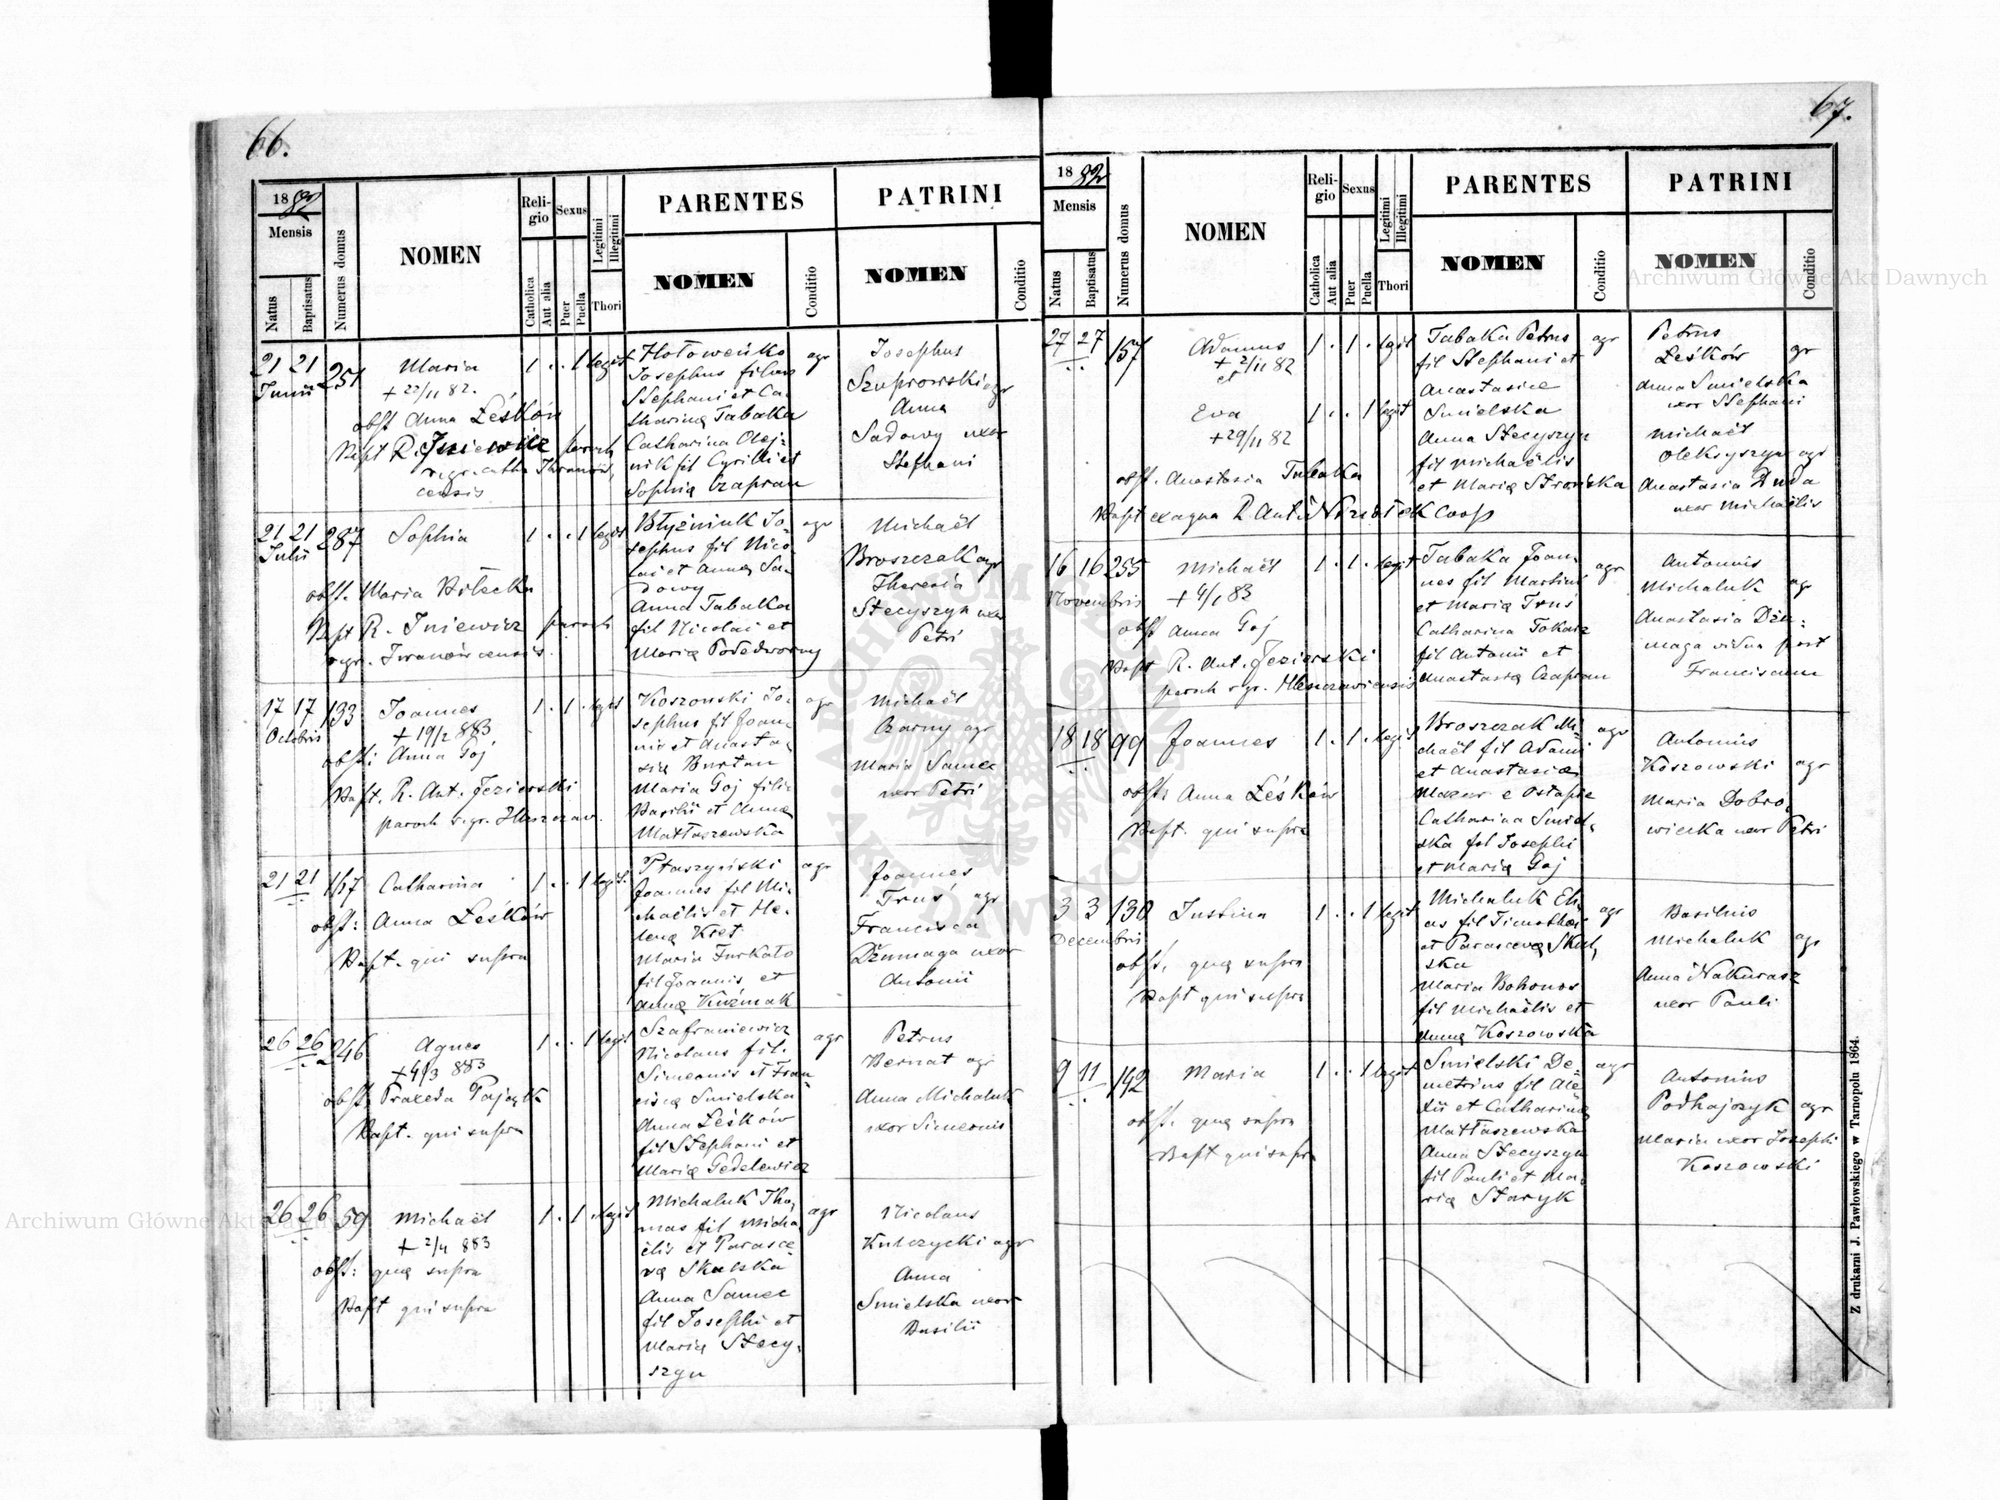 66.
1882
Mensis
Natus
Baptisatus
Numerus domus
NOMEN
Religio
Catholica
Aut alia
Sexus
Puer
Puella
Legitimi
Illegitimi
Thori
PARENTES
NOMEN
Conditio
PATRINI
NOMEN
Conditio
21 21 251
Junii
Maria
+ 22/11 82.
obst Anna Leśków
Bapt R. Jniewicz paroch
1 . . 1 legit
Josephus filius
Stephani et Ca-
tharina Tabaka
Catharina Olej-
nik fil Cyrilli et
Sophia Czapran
agr
Josephus
Szuprowski agr
Anna
Sadowy uxor
Stephani
21 21 287
Julii
Sophia
obst. Maria
Bapt R. Jniewicz paroch
1 . . 1 legit
sephus fil Nico-
lai et Anna Sa-
dowy
Anna Tabaka
fil Nicolai et
Maria Podedworny
agr
Michaël
Broszczak agr
Theresia
Stecyszyn uxor
Petri
17 17 133
Octobris
Joannes
+ 19/2 883
obst: Anna Goj
Bapt. R. Ant. Jezierski
1 . 1 . legit
Koszowski Jo-
sephus fil Joan-
nis et Anasta-
sia Burtan
Maria Goj filia
Basilii et Anna
Małtaszewska
agr
Michaël
Czarny agr
Maria Samec
uxor Petri
21 21 117
Catharina
obst: Anna Leśków
Bapt. qui supra
1 . . 1 legit.
Ptaszyński
Joannes fil Mi-
chaëlis et He-
lena Kret
Maria Furkało
fil Joannis et
Anna Kuźmak
agr
Joannes
Truś agr
Francisca
Dżumaga uxor
Antonii
26 26 246
Agnes
+ 4/3 883
obst: Praxeda Pająk
Bapt. qui supra
1 . . 1 legit
Szafraniewicz
Nicolaus fil.
Simeonis et Fran-
cisca Smielska
Anna Leśków
fil Stephani et
Maria Gedelewicz
agr
Petrus
Bernat agr
Anna Michaluk
uxor Simeonis
26 26 59
Michaël
+ 2/4 883
obst: quæ supra
Bapt qui supra
1 . 1 . legit
Michaluk Tho-
mas fil Micha-
ëlis et Parasce-
va Skalska
Anna Samec
fil Josephi et
Maria Stecy-
szyn
agr
Nicolaus
Kulczycki agr
Anna
Smielska uxor
Basilii
67.
1882
Mensis
Natus
Baptisatus
Numerus domus
NOMEN
Religio
Catholica
Aut alia
Sexus
Puer
Puella
Legitimi
Illegitimi
Thori
PARENTES
NOMEN
Conditio
PATRINI
NOMEN
Conditio
27 27 157
Adamus
+ 2/11 82
et
Eva
+ 29/11 82
obst. Anastasia Tabaka
Bapt ex aqua R. Ant. Coop
1 . 1 . legit
1 . . 1 legit
Tabaka Petrus
fil Stephani et
Anastasiae
Smielska
Anna Stecyszyn
fil Michaëlis
et Maria Strońska
agr
Petrus
Leśków agr
Anna Smielska
uxor Stephani
Michaël
Oleksyszyn agr
Anastasia Duda
uxor Michaëlis
16 16 255
Novembris
Michaël
+ 4/1 83
obst Anna Goj
Bapt R. Ant. Jezierski
1 . 1 . legit
Tabaka Joan-
nes fil Martini
et Maria Truś
Catharina Tokarz
fil Antonii et
Anastasia Czapran
agr
Antonius
Michaluk agr
Anastasia Dżu-
maga vidua post
Franciscum
18 18 99
Joannes
obst: Anna Leśków
Bapt. qui supra
1 . 1 . legit
Broszczak Mi-
chaël fil Adami
et Anastasiae
Mazur e Ostapie
Catharina Smiel-
ska fil Josephi
et Maria Goj
agr
Antonius
Koszowski agr
Maria Dobro-
wicka uxor Petri
3 3 130
Decembris
Justina
obst. quæ supra
Bapt qui supra
1 . . 1 legit
Michaluk Eli-
as fil Timothei
et Parasceva Skal-
ska
Maria Bohonos
fil Michaëlis et
Anna Koszowska
agr
Basilius
Michaluk agr
Anna Nakurasz
uxor Pauli
9 11 142
Maria
obst. quæ supra
Bapt qui supra
1 . . 1 legit
Smielski De-
metrius fil Ale-
xii et Catharina
Małtaszewska
Anna Stecyszyn
fil Pauli et Ma-
ria Staryk
agr
Antonius
Podhajczyk agr
Maria uxor Josephi
Koszowski
Z drukarni J. Pawłowskiego w Tarnopolu 1864.
Archiwum Główne Akt Dawnych
Archiwum Główne Akt Dawnych
ARCHIWUM GŁÓWNE AKT DAWNYCH